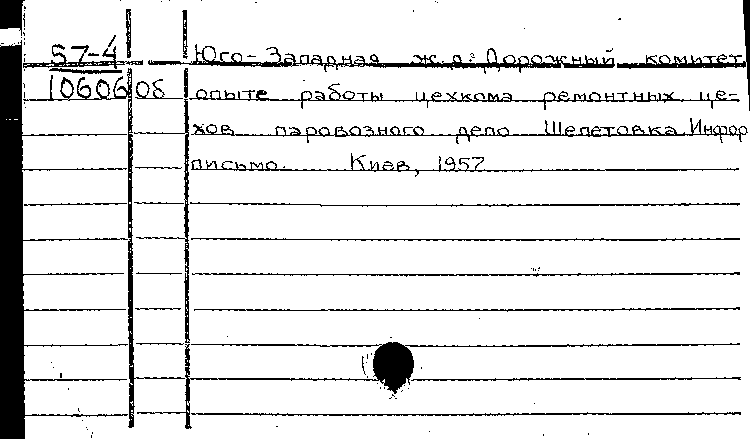 57-4 Юго-Западная ж.д. Дорожный комитет
10606 об опыте работы цехкома ремонтных це-
хов паровозного депо Шепетовка. Инфор
письмо. Киев, 1957